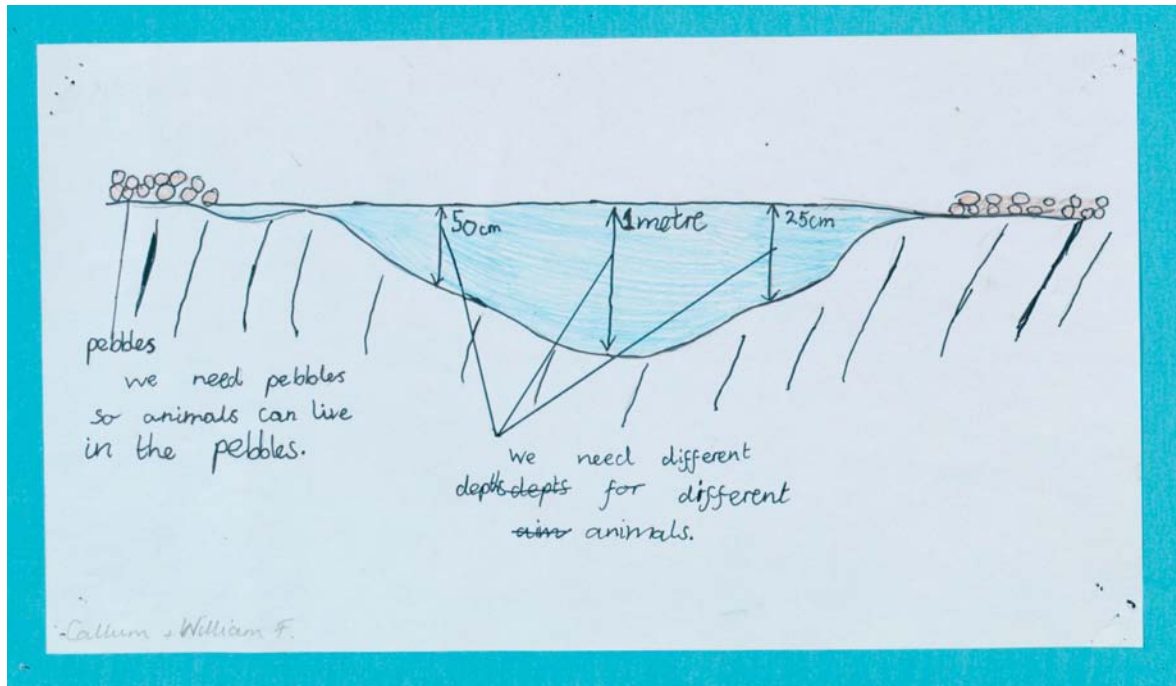 50cm
1 metre
25cm
pebbles
we need pebbles
so animals can live
in the pebbles.
We need different
depths depts for different
aim animals.
Callum + William F.